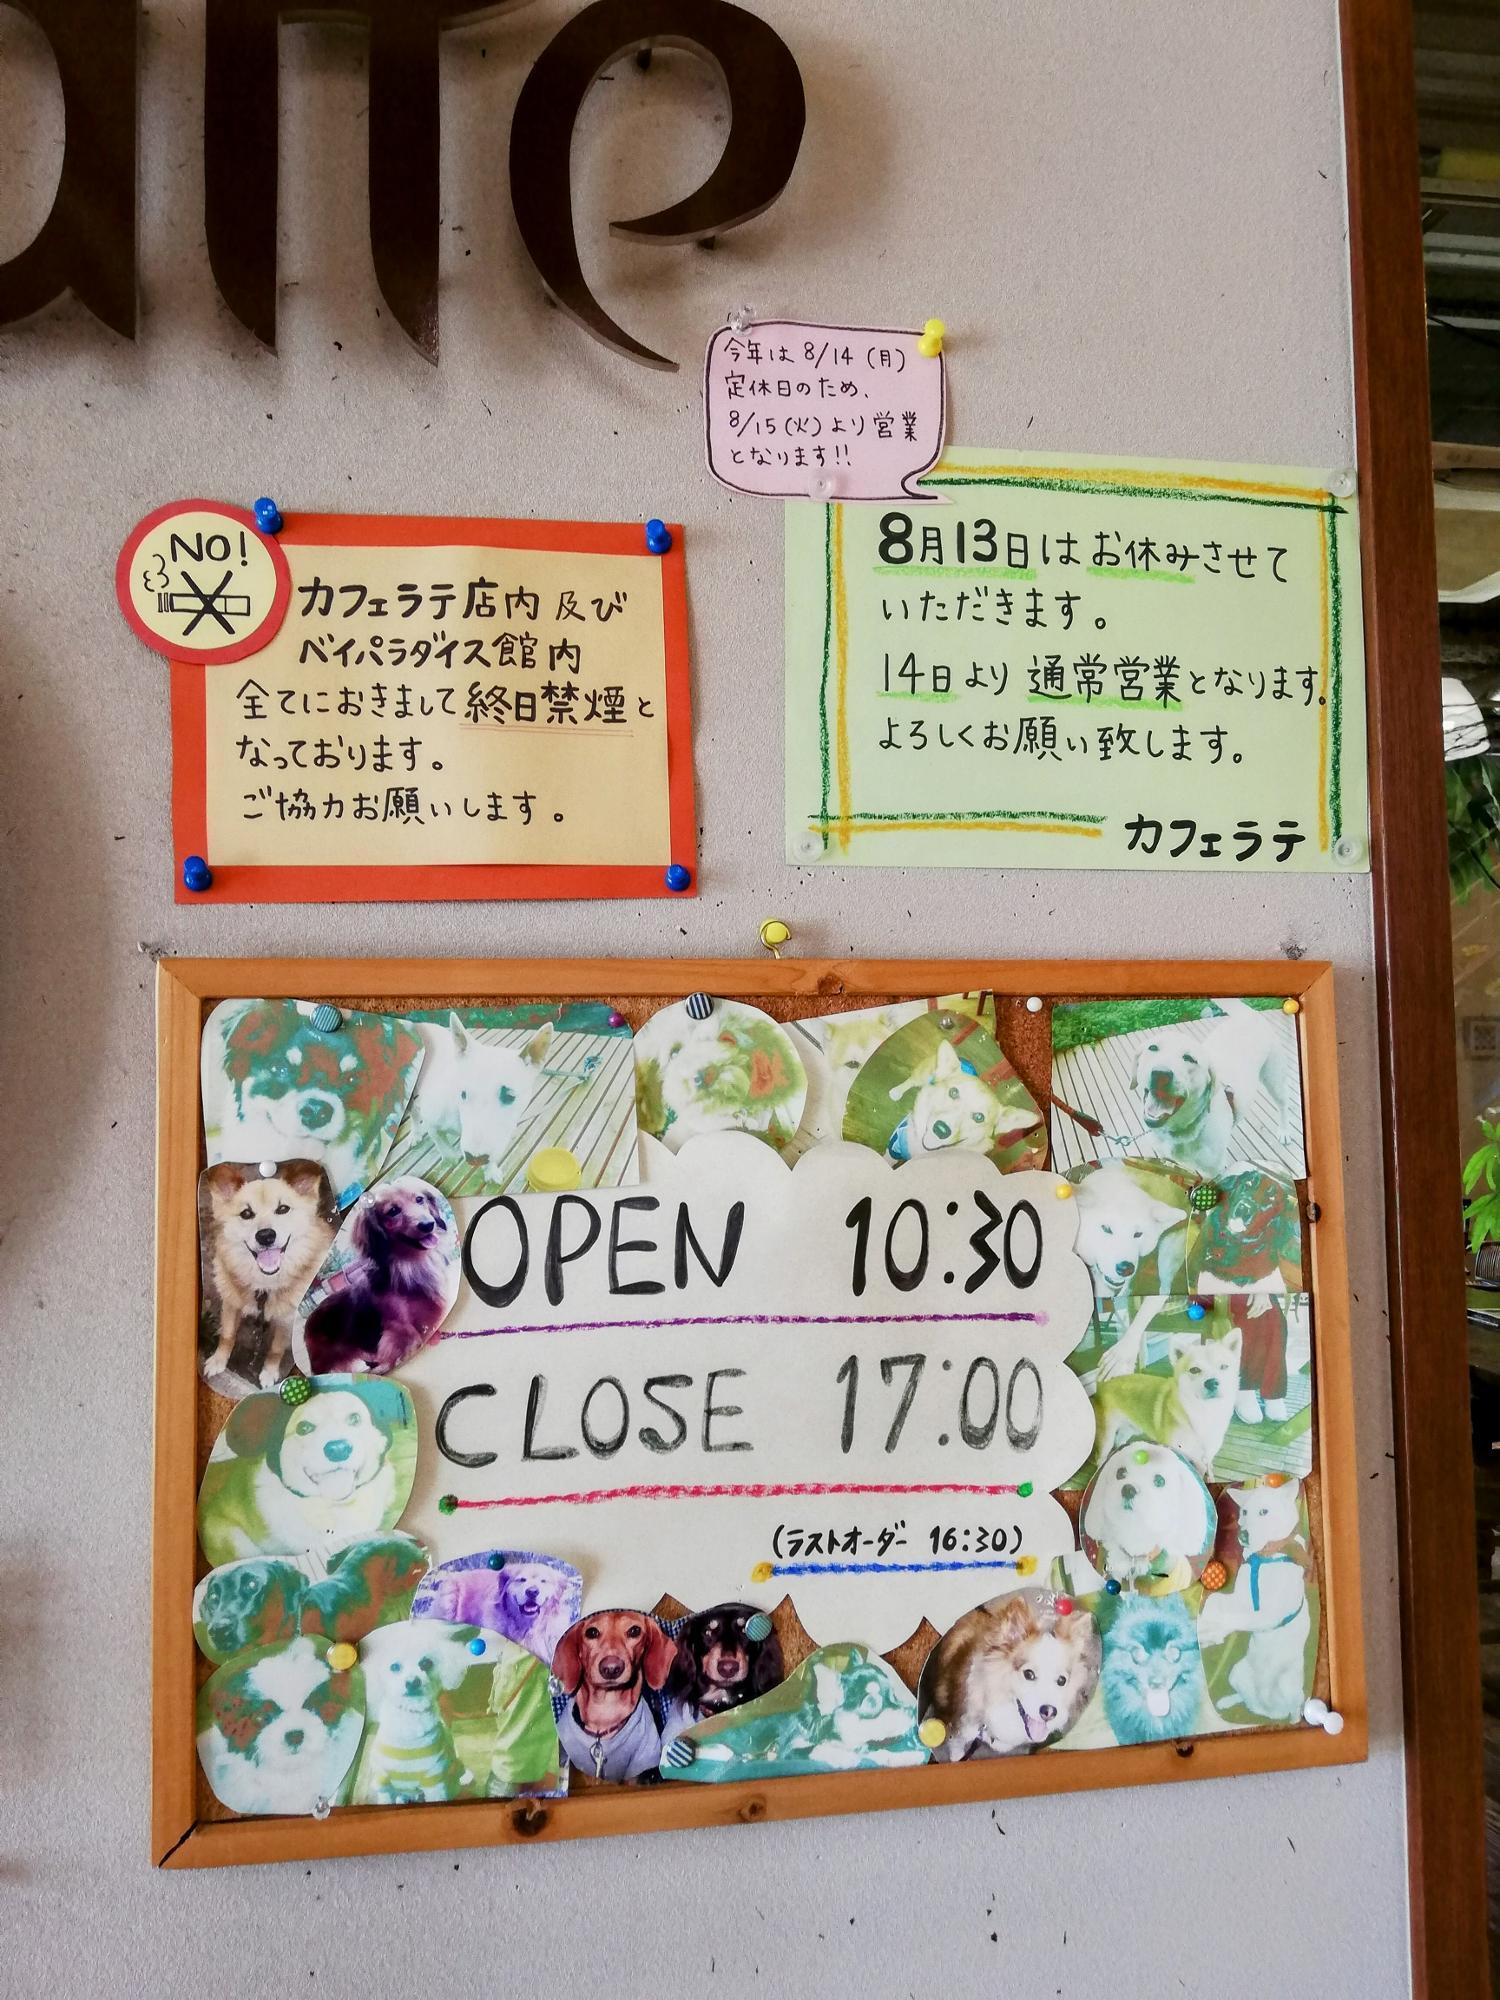 今年は 8/14 (月)
定休日のため、
8/15(火)より営業
となります!!
NO!
カフェラテ店内 及び
ベイパラダイス館内
全てにおきまして終日禁煙と
なっております。
ご協力お願いします。
8月13日はお休みさせて
いただきます。
14日より 通常営業となります。
よろしくお願い致します。
カフェラテ
OPEN 10:30
CLOSE 17:00
(ラストオーダー 16:30)